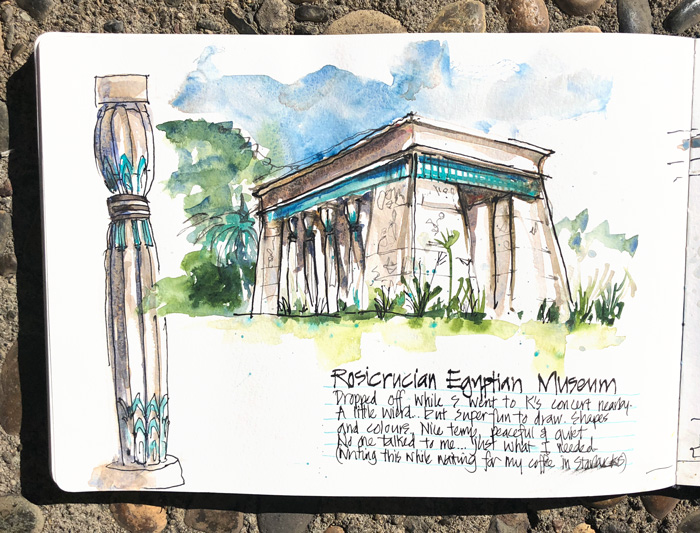 Rosicrucian Egyptian Museum
Dropped off while S went to K's concert nearby.
A little weird. But super fun to draw. Shapes
and colours. Nice temp, peaceful & quiet.
No one talked to me... just what I needed.
(Writing this while waiting for my coffee in Starbucks)